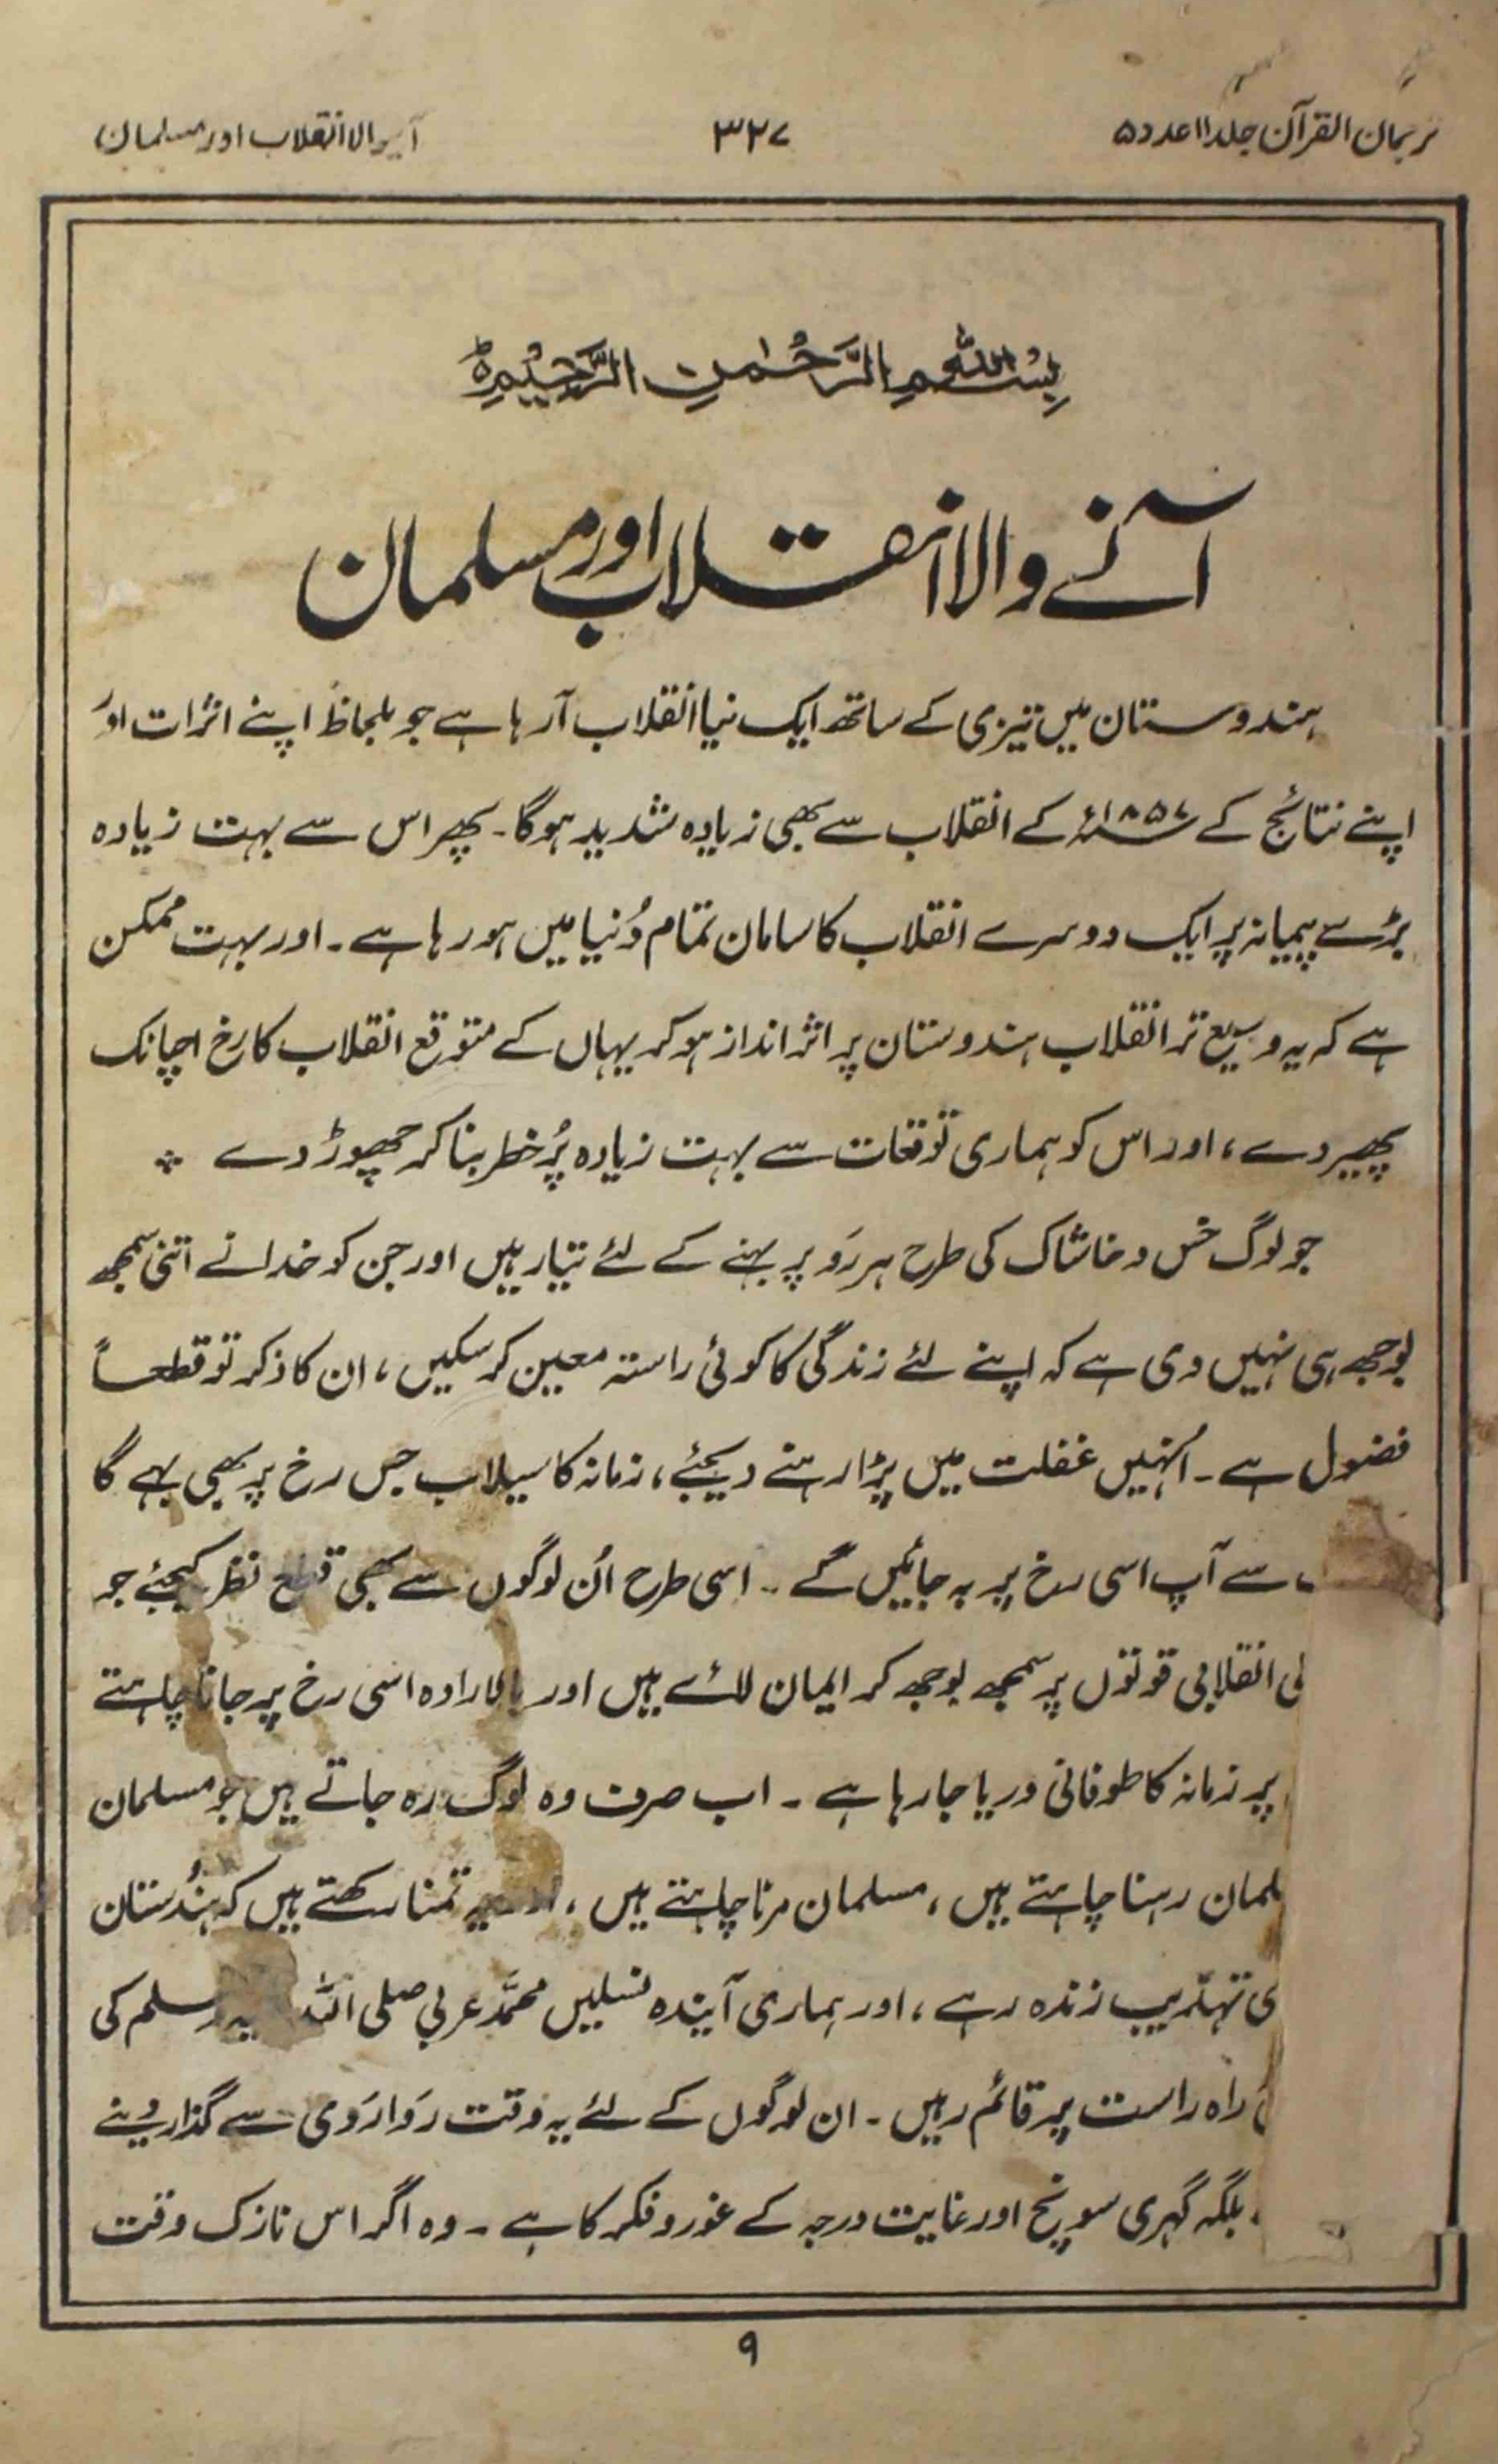 ترجمان القرآن جلد ۱۱ عدد ۵
۳۲۷
آنیوالا انقلاب اور مسلمان
بِسْمِ اللّٰهِ الرَّحْمٰنِ الرَّحِيْمِ
آنے والا انقلاب اور مسلمان
ہندوستان میں تیزی کے ساتھ ایک نیا انقلاب آ رہا ہے جو بلحاظ اپنے اثرات اور
اپنے نتائج کے ۱۸۵۷ء کے انقلاب سے بھی زیادہ شدید ہوگا۔ پھر اس سے بہت زیادہ
بڑے پیمانہ پر ایک دوسرے انقلاب کا سامان تمام دُنیا میں ہو رہا ہے۔ اور بہت ممکن
ہے کہ یہ وسیع تر انقلاب ہندوستان پر اثر انداز ہو کر یہاں کے متوقع انقلاب کا رخ اچانک
پھیر دے، اور اس کو ہماری توقعات سے بہت زیادہ پُرخطر بنا کر چھوڑ دے ۔
جو لوگ خس و خاشاک کی طرح ہر رَو پر بہنے کے لئے تیار ہیں اور جن کو خدا نے اتنی سمجھ
بوجھ ہی نہیں دی ہے کہ اپنے لئے زندگی کا کوئی راستہ معین کر سکیں، ان کا ذکر تو قطعاً
فضول ہے۔ اُنہیں غفلت میں پڑا رہنے دیجئے، زمانہ کا سیلاب جس رخ پر بھی بہے گا
سے آپ اسی رخ پر بہ جائیں گے۔ اسی طرح اُن لوگوں سے بھی قطع نظر کیجئے جو
انقلابی قوتوں پر سمجھ بوجھ کر ایمان لائے ہیں اور بالارادہ اسی رخ پر جانا چاہتے
پر زمانہ کا طوفانی دریا جا رہا ہے۔ اب صرف وہ لوگ رہ جاتے ہیں جو مسلمان
لمان رہنا چاہتے ہیں، مسلمان مرنا چاہتے ہیں، اور یہ تمنا رکھتے ہیں کہ ہندُستان
ی تہذیب زندہ رہے، اور ہماری آیندہ نسلیں محمّد عربی صلی اللہ یہ وسلم کی
راہ راست پر قائم رہیں۔ ان لوگوں کے لئے یہ وقت رَوارَوی سے گذار دینے
بلکہ گہری سونچ اور غایت درجہ کے غور و فکر کا ہے۔ وہ اگر اس نازک وقت
۹